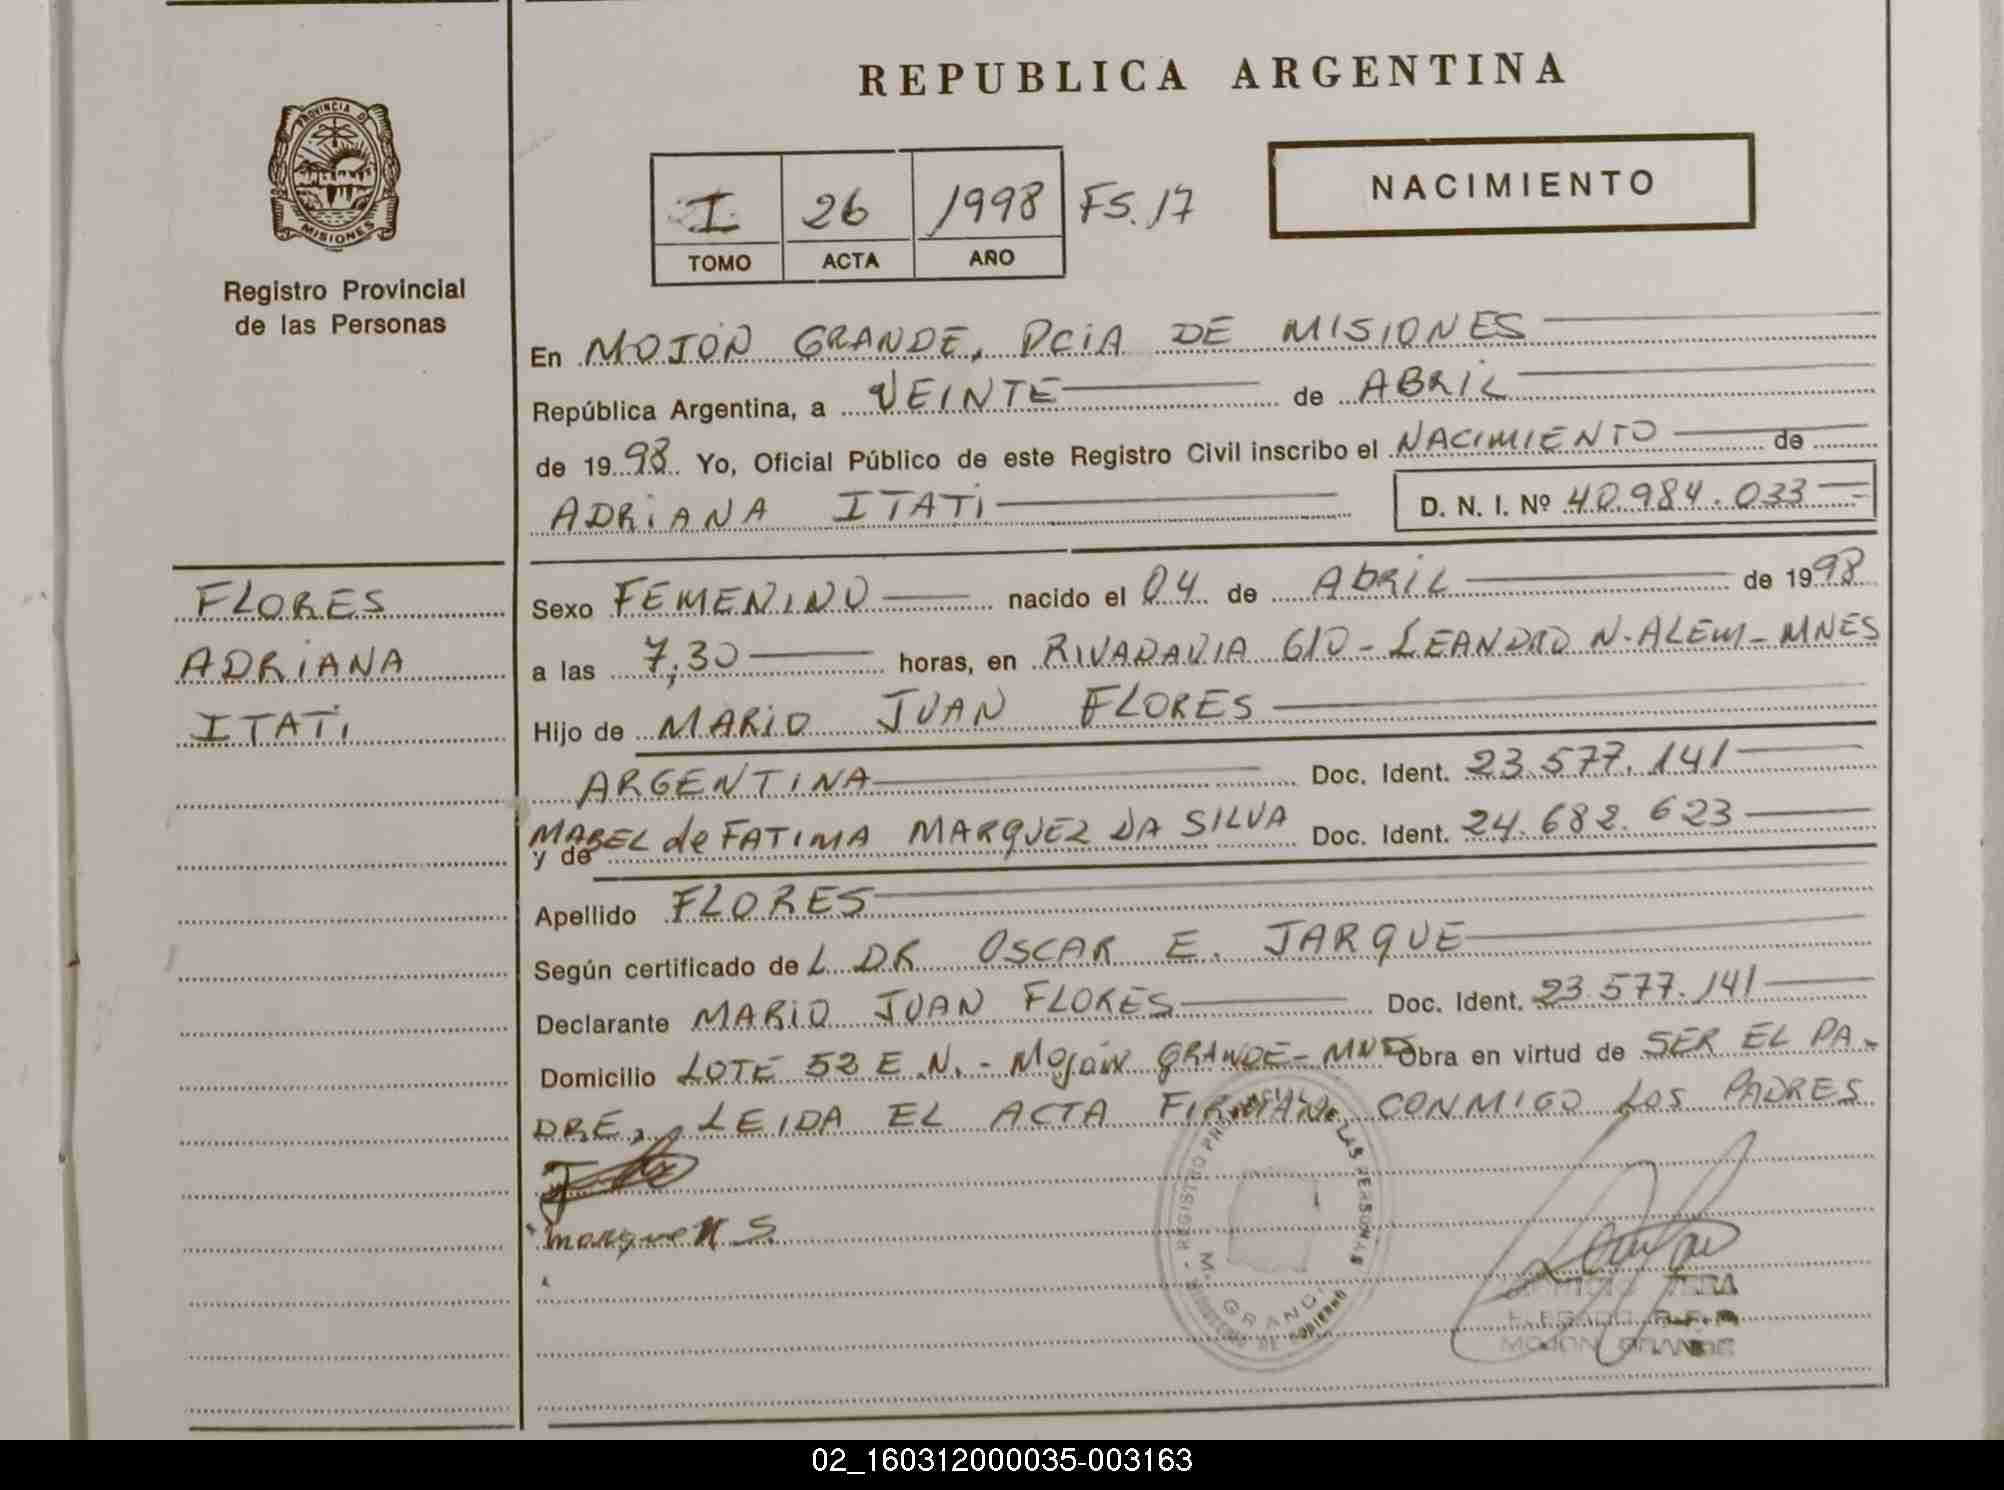 REPUBLICA ARGENTINA
PROVINCIA DE
MISIONES
Registro Provincial
de las Personas
I 26 1998 FS. 17
TOMO ACTA AÑO
NACIMIENTO
En MOJON GRANDE, PCIA DE MISIONES
República Argentina, a VEINTE de ABRIL
de 1998 Yo, Oficial Público de este Registro Civil inscribo el NACIMIENTO de
ADRIANA ITATI D. N. I. Nº 40.984.033
FLORES
ADRIANA
ITATI
Sexo FEMENINO nacido el 04 de ABRIL de 1998
a las 7,30 horas, en RIVADAVIA 610 - LEANDRO N. ALEM - MNES
Hijo de MARIO JUAN FLORES
ARGENTINA Doc. Ident. 23.577.141
y de MABEL de FATIMA MARQUEZ DA SILVA Doc. Ident. 24.682.623
Apellido FLORES
Según certificado deL DR OSCAR E. JARQUE
Declarante MARIO JUAN FLORES Doc. Ident. 23.577.141
Domicilio LOTE 53 E.N. - Mojón GRANDE - MNES Obra en virtud de SER EL PA-
DRE, LEIDA EL ACTA FIRMAN CONMIGO LOS PADRES
S.
REGISTRO PROVINCIAL DE LAS PERSONAS
M. GRANDE
DE GOBIERNO
MOJON GRANDE
02_160312000035-003163